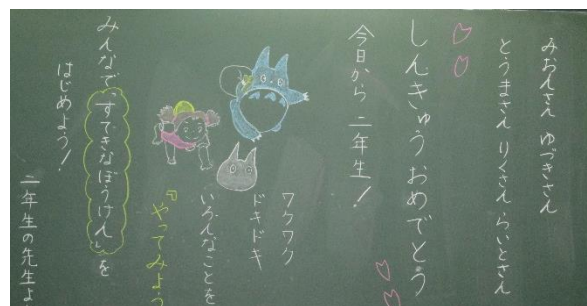 みおんさん ゆづきさん
とうまさん りくさん らいとさん
しんきゅうおめでとう
今日から 二年生！
ワクワク
ドキドキ
いろんなことを
『やってみよう
みんなで「すてきなぼうけん」を
はじめよう！
二年生の先生よ